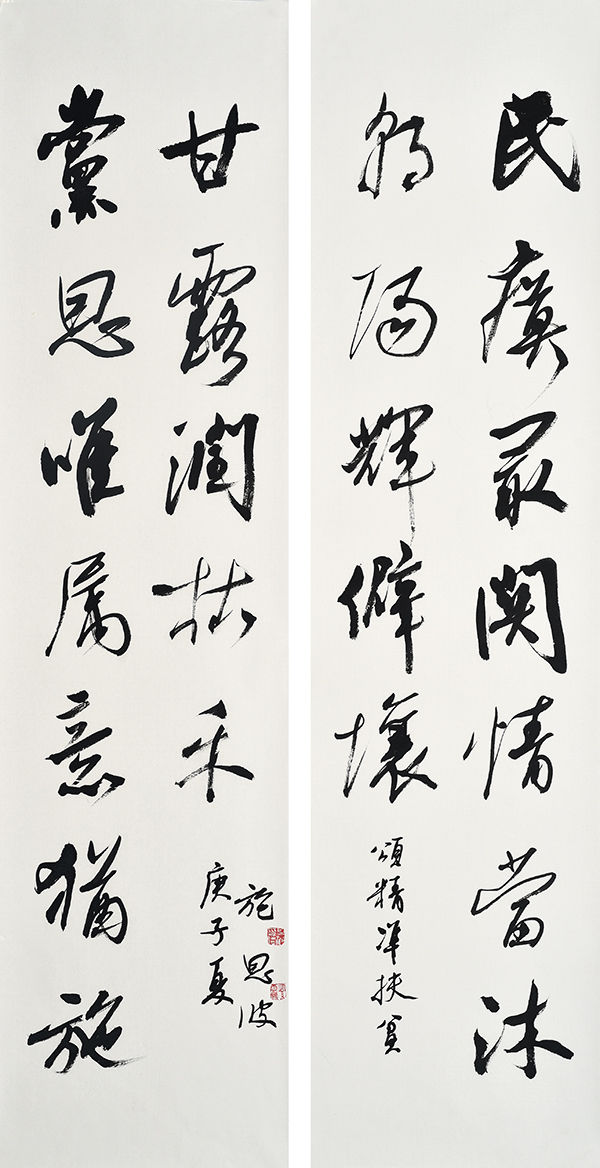 民瘼最関情當沐
朝陽輝僻壤
頌精准扶貧
黨恩唯属意猶施
甘露潤枯禾
庚子夏
施恩波